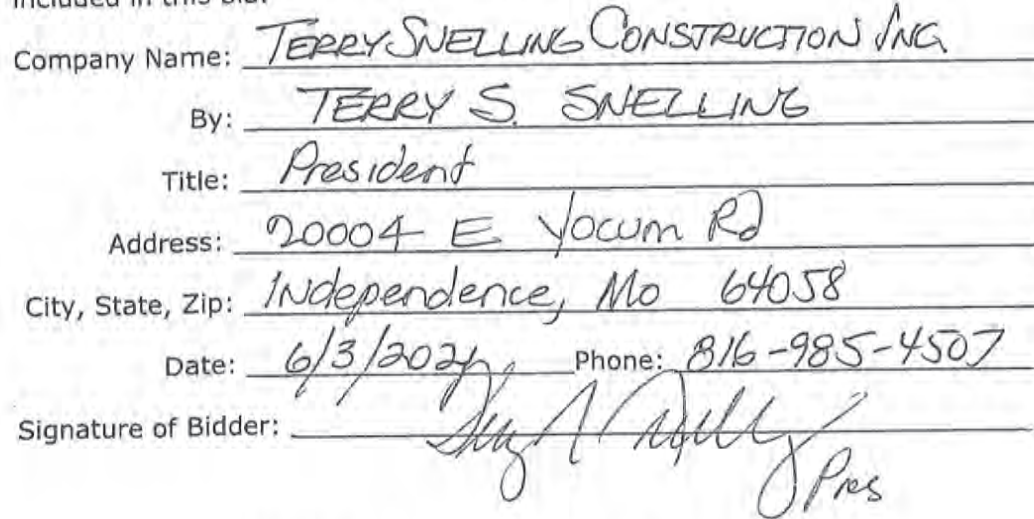 included in this bid.
Company Name: TERRY SNELLING CONSTRUCTION INC.
By: TERRY S. SNELLING
Title: President
Address: 20004 E Yocum Rd
City, State, Zip: Independence, Mo 64058
Date: 6/3/202 Phone: 816-985-4507
Signature of Bidder:
Pres